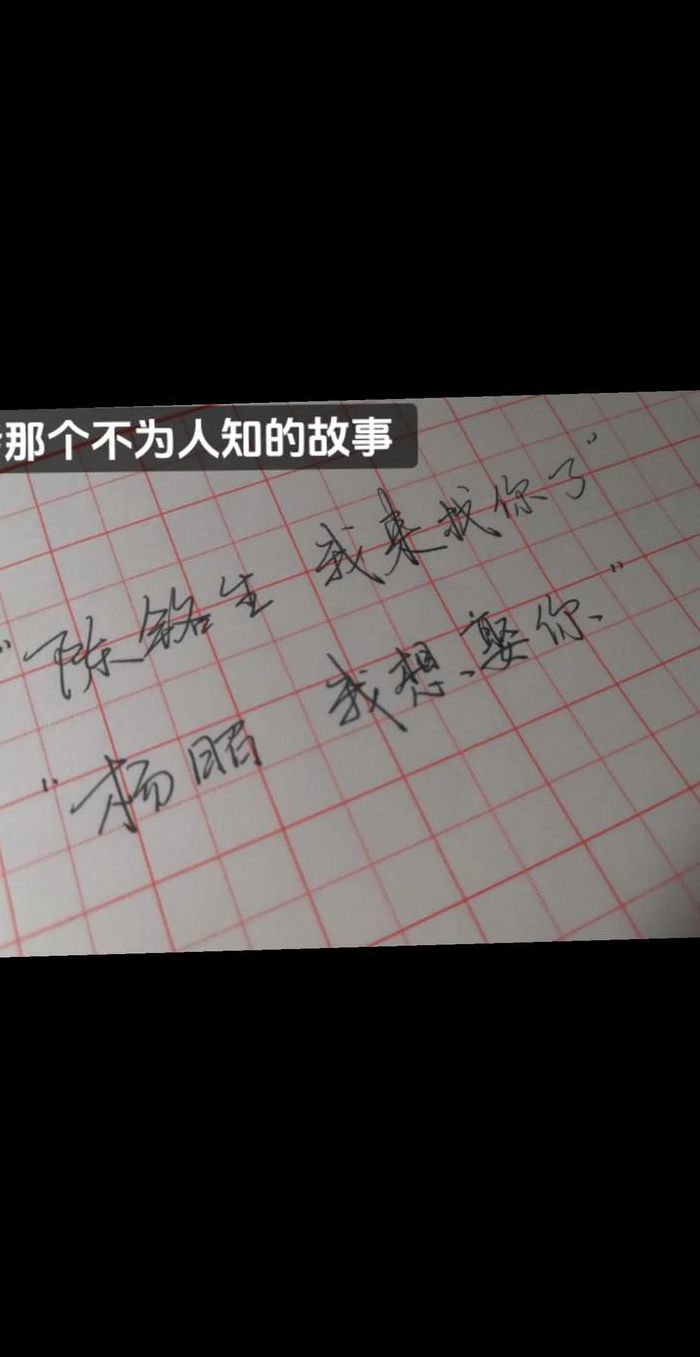 那个不为人知的故事
"陈铭生 我来找你了"
"杨昭 我想娶你."